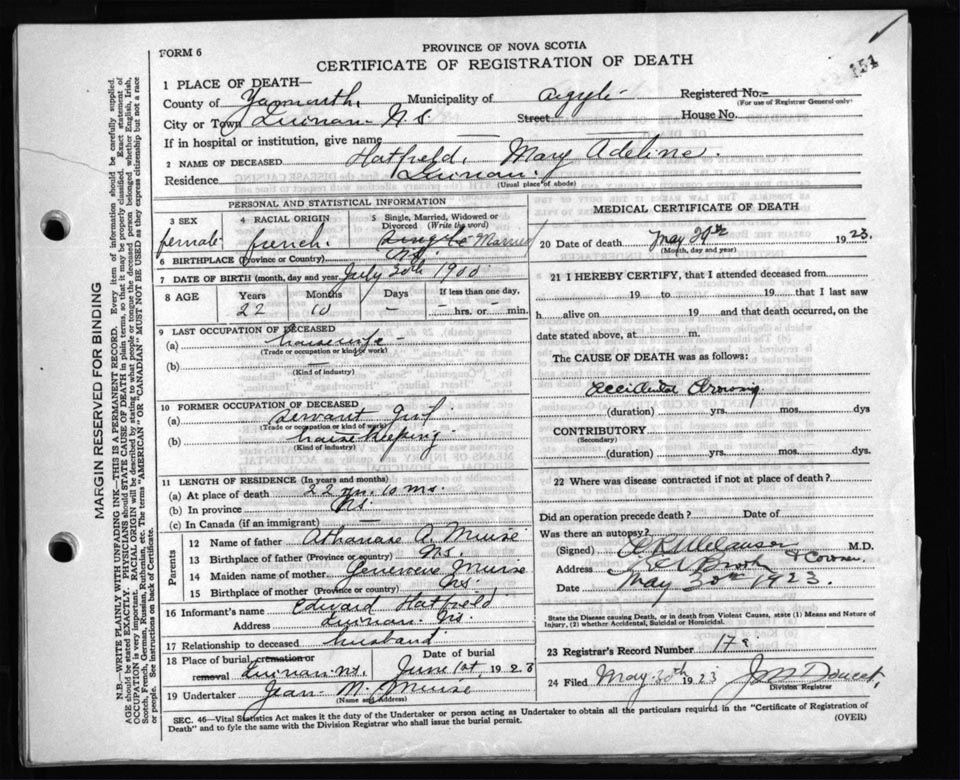 FORM 6
PROVINCE OF NOVA SCOTIA
CERTIFICATE OF REGISTRATION OF DEATH
151
1 PLACE OF DEATH—
County of Yarmouth, Municipality of Argyle Registered No.—
(For use of Registrar General only)
City or Town Quinan N.S. Street House No.
If in hospital or institution, give name
2 NAME OF DECEASED Hatfield, Mary Adeline.
Residence Quinan.
(Usual place of abode)
PERSONAL AND STATISTICAL INFORMATION
3 SEX
female
4 RACIAL ORIGIN
french.
5 Single, Married, Widowed or Divorced (Write the word)
Single Married
6 BIRTHPLACE (Province or Country) N.S.
7 DATE OF BIRTH (month, day and year) July 30th 1900
8 AGE Years Months Days If less than one day,
22 10 — — hrs. or — min.
9 LAST OCCUPATION OF DECEASED
(a) housewife -
(Trade or occupation or kind of work)
(b) —
(Kind of industry)
10 FORMER OCCUPATION OF DECEASED
(a) Servant Girl
(Trade or occupation or kind of work)
(b) house keeping
(Kind of industry)
11 LENGTH OF RESIDENCE (In years and months)
(a) At place of death 22 yrs. 10 ms.
(b) In province N.S.
(c) In Canada (if an immigrant) —
Parents
12 Name of father Athanase A. Muise
13 Birthplace of father (Province or country) N.S.
14 Maiden name of mother Genevieve Muise
15 Birthplace of mother (Province or country) N.S.
16 Informant's name Edward Hatfield
Address Quinan N.S.
17 Relationship to deceased husband
18 Place of burial, cremation or removal Quinan N.S. Date of burial June 1st, 1923
19 Undertaker Jean M. Muise
(Name and Address)
MEDICAL CERTIFICATE OF DEATH
20 Date of death May 29th 1923.
(Month, day and year)
21 I HEREBY CERTIFY, that I attended deceased from
19 to 19 that I last saw
h alive on 19 and that death occurred, on the
date stated above, at m.
The CAUSE OF DEATH was as follows:
Accidental Drowning
(duration) yrs. mos. dys
CONTRIBUTORY
(Secondary)
(duration) yrs. mos. dys.
22 Where was disease contracted if not at place of death?
Did an operation precede death? Date of
Was there an autopsy?
(Signed) M.D.
& Coroner
Address
Date May 30th 1923.
State the Disease causing Death, or in death from Violent Causes, state (1) Means and Nature of Injury, (2) whether Accidental, Suicidal or Homicidal.
23 Registrar's Record Number 17
24 Filed May 30th 1923 Doucet,
Division Registrar
SEC. 46—Vital Statistics Act makes it the duty of the Undertaker or person acting as Undertaker to obtain all the particulars required in the "Certificate of Registration of Death" and to fyle the same with the Division Registrar who shall issue the burial permit.
(OVER)
MARGIN RESERVED FOR BINDING
N.B.—WRITE PLAINLY WITH UNFADING INK—THIS IS A PERMANENT RECORD. Every item of information should be carefully supplied. AGE should be stated EXACTLY. PHYSICIANS should STATE CAUSE OF DEATH in plain terms, so that it may be properly classified. Exact statement of OCCUPATION is very important. RACIAL ORIGIN will be described by stating to what people or tongue the deceased person belonged, whether English, Irish, Scotch, French, German, Russian, Ruthenian, etc. The terms "AMERICAN" OR "CANADIAN" MUST NOT BE USED as they express citizenship but not a race or people. See instructions on back of Certificate.